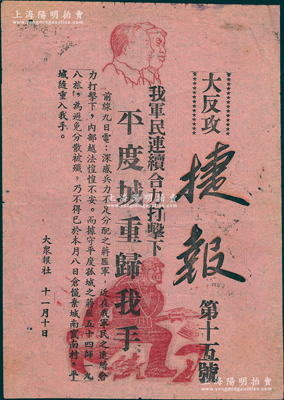 上海阳明拍卖
大反攻
捷報
第十五號
我軍民連續合力打擊下
平度城重歸我手
前綫九日電：深感兵力不足分配之蔣匪軍，近在我軍民之連續合
力打擊下，內部越法惶惶不安。而據守平度孤城之蔣匪五十四師一九
八旅，為避免分散被殲，乃不得已於本月八日倉慌棄城南竄南村，平
城隨重入我手。
大衆報社　十一月十日
www.yangmingauction.com